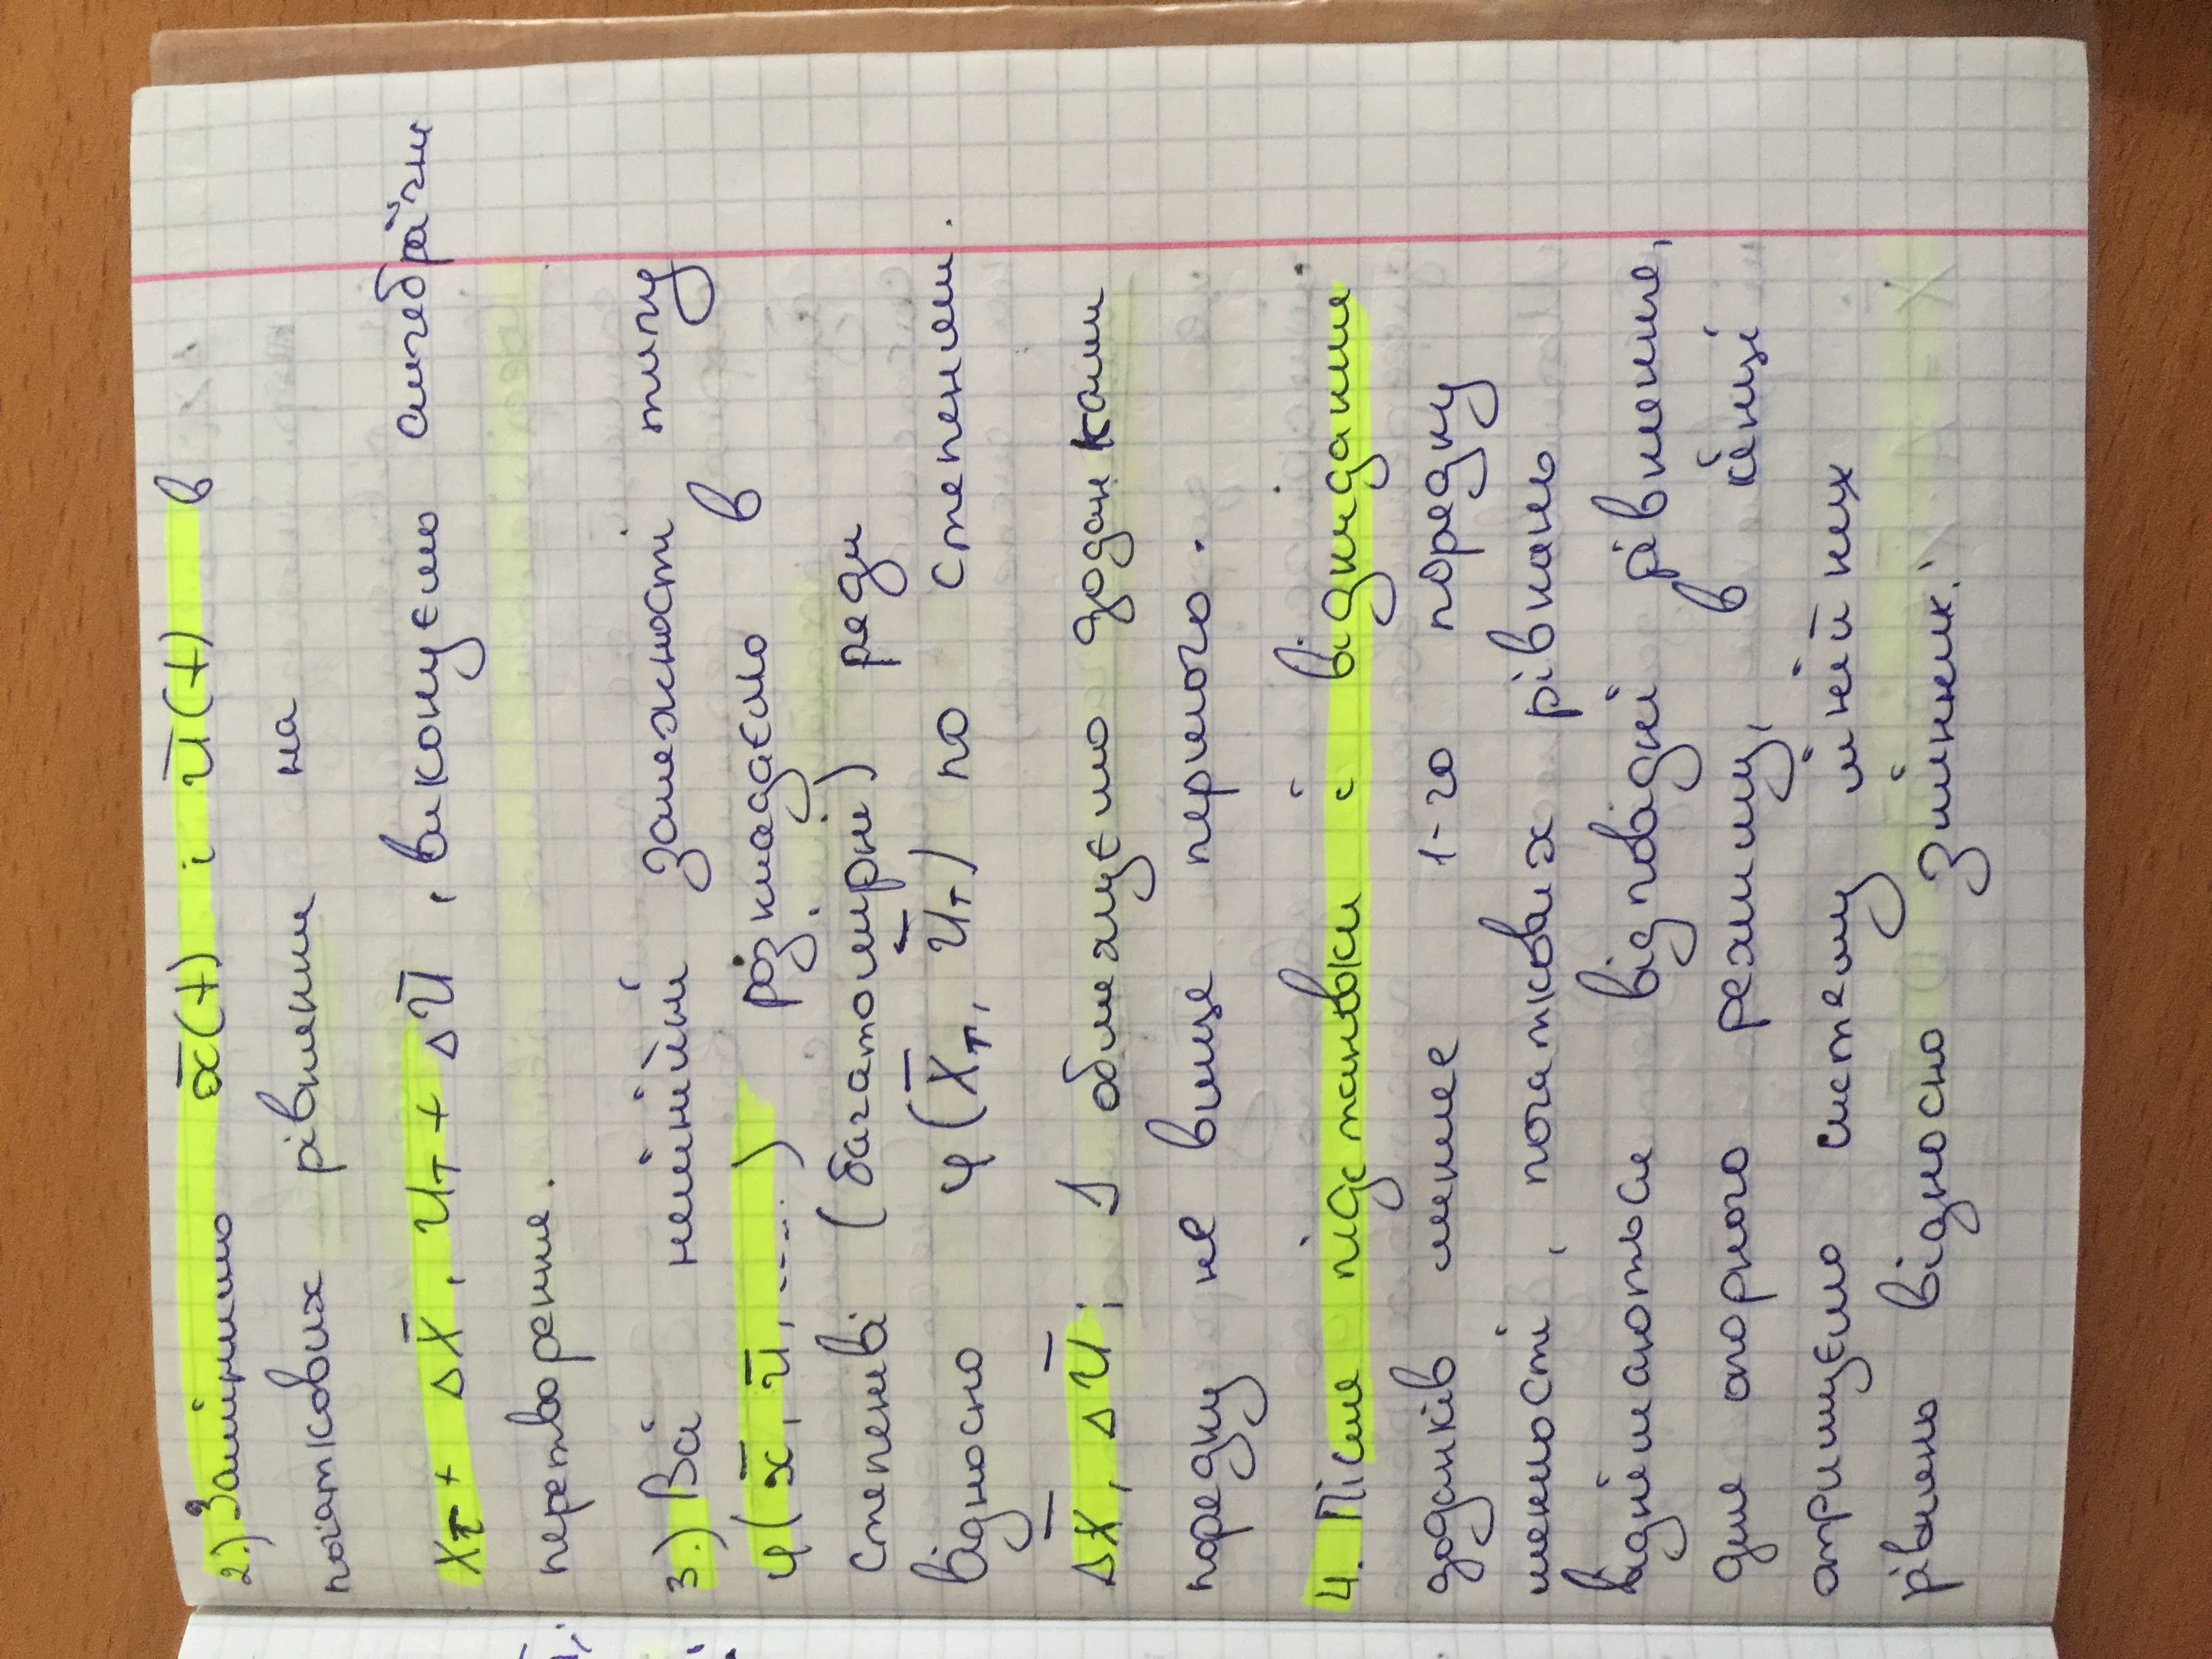 2.) Замінимо x̄(t) і ū(t) в
початкових рівняння на
xт + Δx̄, uт + Δū, виконуємо алгебраїчні
перетворення.
3.) Всі нелінійні залежності типу
φ(x̄, ū, .....) розкладаємо в
степеневі (багатомірні) ряди
відносно φ(x̄т, ūт) по степеням.
Δx̄, Δū; І обмежуємо доданками
порядку не вище першого.
4. Після підстановки і відкидання
доданків менше 1-го порядку
малості, початкових рівнянь
віднімаються відповідні рівняння,
для опорного режиму, в кінці
отримуємо систему лінійних
рівнянь відносно змінних.